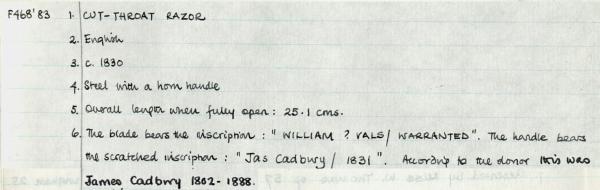 F468'83 1. CUT-THROAT RAZOR
2. English
3. c. 1830
4. Steel with a horn handle
5. Overall length when fully open: 25.1 cms.
6. The blade bears the inscription: "WILLIAM ? VALS/ WARRANTED". The handle bears
the scratched inscription: "Jas Cadbury/ 1831". According to the donor this was
James Cadbury 1802-1888.